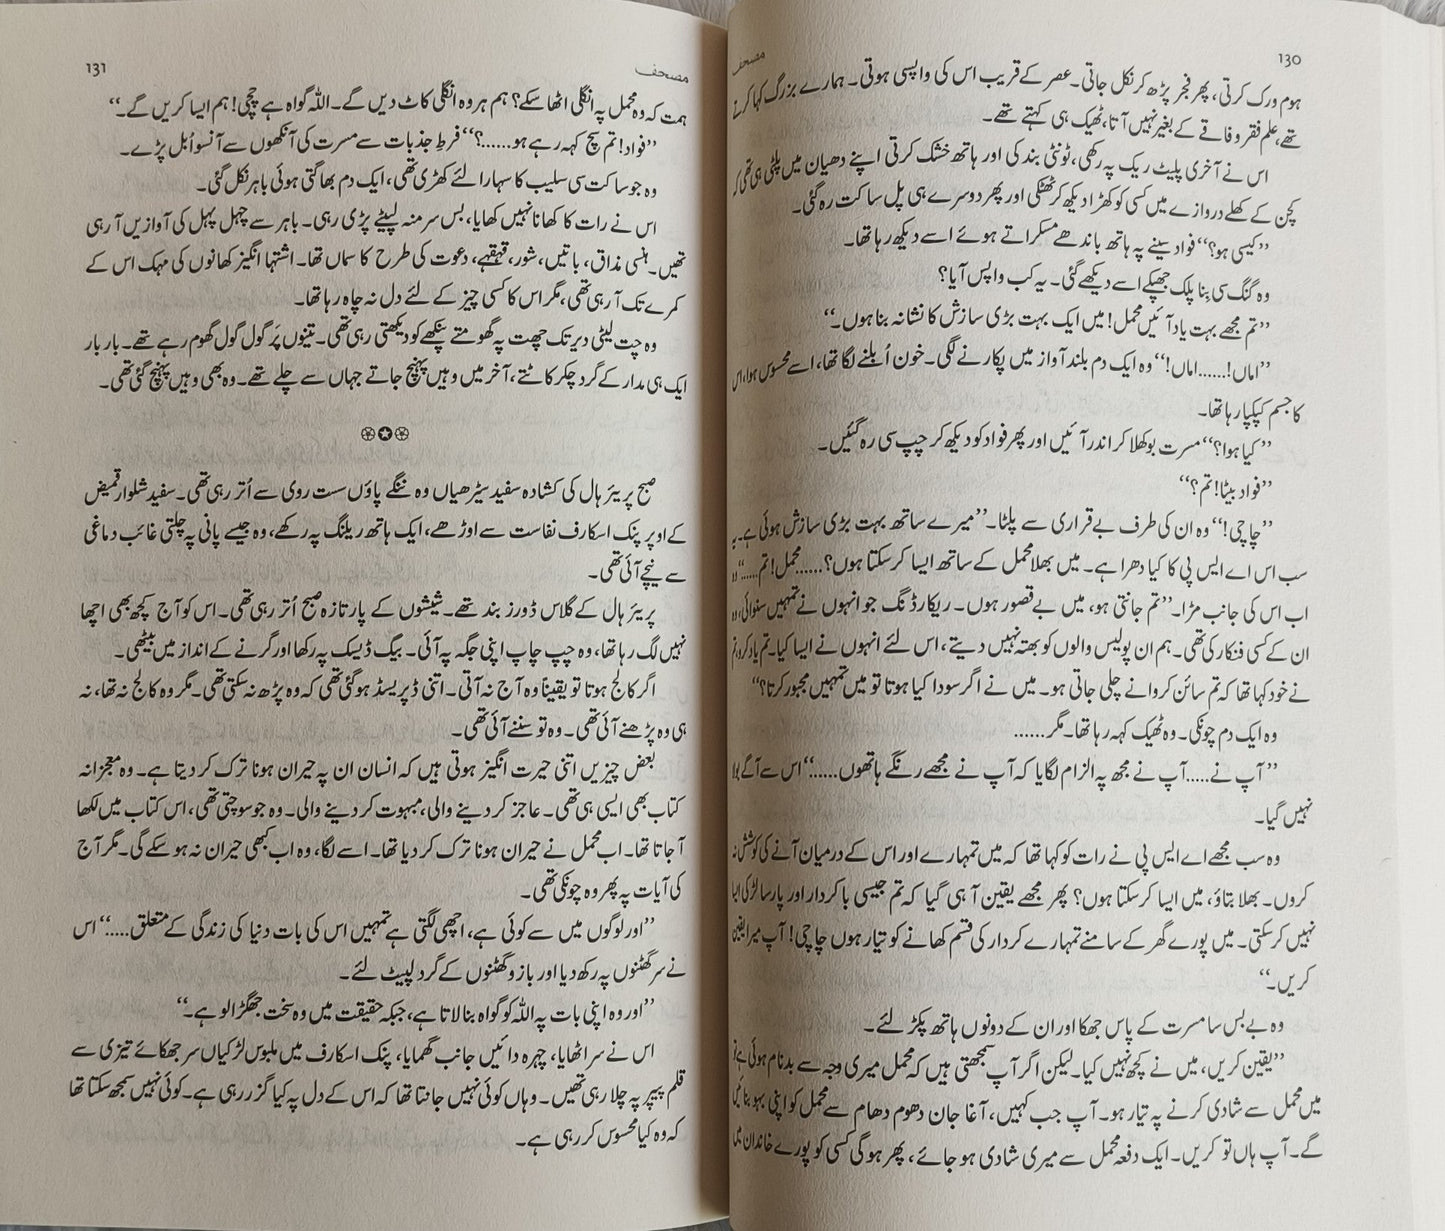 ۱۳۰
مصحف
ہوم ورک کرتی، پھر فجر پڑھ کر نکل جاتی۔ عصر کے قریب اس کی واپسی ہوتی۔ ہمارے بزرگ کہا کرتے
تھے، علم فقر و فاقے کے بغیر نہیں آتا، ٹھیک ہی کہتے تھے۔
اس نے آخری پلیٹ ریک پہ رکھی، ٹونٹی بند کی اور ہاتھ خشک کرتی اپنے دھیان میں پلٹی ہی تھی کہ
کچن کے کھلے دروازے میں کسی کو کھڑا دیکھ کر ٹھٹکی اور پھر دوسرے ہی پل ساکت رہ گئی۔
’’کیسی ہو؟‘‘ فواد سینے پہ ہاتھ باندھے مسکراتے ہوئے اسے دیکھ رہا تھا۔
وہ گنگ سی بِنا پلک جھپکے اسے دیکھے گئی۔ یہ کب واپس آیا؟
’’تم مجھے بہت یاد آئیں محمل! میں ایک بہت بڑی سازش کا نشانہ بنا ہوں۔‘‘
’’اماں!......اماں!‘‘ وہ ایک دم بلند آواز میں پکارنے لگی۔ خون اُبلنے لگا تھا، اسے محسوس ہوا، اس
کا جسم کپکپا رہا تھا۔
’’کیا ہوا؟‘‘ مسرت بوکھلا کر اندر آئیں اور پھر فواد کو دیکھ کر چپ سی رہ گئیں۔
’’فواد بیٹا! تم؟‘‘
’’چاچی!‘‘ وہ ان کی طرف بے قراری سے پلٹا۔ ’’میرے ساتھ بہت بڑی سازش ہوئی ہے۔ یہ
سب اس اے ایس پی کا کیا دھرا ہے۔ میں بھلا محمل کے ساتھ ایسا کر سکتا ہوں؟......محمل! تم.....‘‘ وہ
اب اس کی جانب مڑا۔ ’’تم جانتی ہو، میں بے قصور ہوں۔ ریکارڈنگ جو انہوں نے تمہیں سنوائی، وہ
ان کے کسی فنکار کی تھی۔ ہم ان پولیس والوں کو بھتہ نہیں دیتے، اس لئے انہوں نے ایسا کیا۔ تم یاد کرو، تم
نے خود کہا تھا کہ تم سائن کروانے چلی جاتی ہو۔ میں نے اگر سودا کیا ہوتا تو میں تمہیں مجبور کرتا؟‘‘
وہ ایک دم چونکی۔ وہ ٹھیک کہہ رہا تھا۔ مگر......
’’آپ نے.....آپ نے مجھ پہ الزام لگایا کہ آپ نے مجھے رنگے ہاتھوں.....‘‘ اس سے آگے بولا
نہیں گیا۔
وہ سب مجھے اے ایس پی نے رات کو کہا تھا کہ میں تمہارے اور اس کے درمیان آنے کی کوشش نہ
کروں۔ بھلا بتاؤ، میں ایسا کر سکتا ہوں؟ پھر مجھے یقین آ ہی گیا کہ تم جیسی باکردار اور پارسا لڑکی ایسا
نہیں کر سکتی۔ میں پورے گھر کے سامنے تمہارے کردار کی قسم کھانے کو تیار ہوں چاچی! آپ میرا یقین
کریں۔‘‘
وہ بے بس سا مسرت کے پاس جھکا اور ان کے دونوں ہاتھ پکڑ لئے۔
’’یقین کریں، میں نے کچھ نہیں کیا۔ لیکن اگر آپ سمجھتی ہیں کہ محمل میری وجہ سے بدنام ہوئی ہے تو
میں محمل سے شادی کرنے پہ تیار ہو۔ آپ جب کہیں، آغا جان دھوم دھام سے محمل کو اپنی بہو بنائیں
گے۔ آپ ہاں تو کریں۔ ایک دفعہ محمل سے میری شادی ہو جائے، پھر ہو گی کسی کو پورے خاندان میں
۱۳۱
مصحف
ہمت کہ وہ محمل پہ انگلی اٹھا سکے؟ ہم ہر وہ انگلی کاٹ دیں گے۔ اللہ گواہ ہے چچی! ہم ایسا کریں گے۔‘‘
’’فواد! تم سچ کہہ رہے ہو......؟‘‘ فرطِ جذبات سے مسرت کی آنکھوں سے آنسو اُبل پڑے۔
وہ جو ساکت سی سلیب کا سہارا لئے کھڑی تھی، ایک دم بھاگتی ہوئی باہر نکل گئی۔
اس نے رات کا کھانا نہیں کھایا، بس سر منہ لپیٹے پڑی رہی۔ باہر سے چہل پہل کی آوازیں آ رہی
تھیں۔ ہنسی مذاق، باتیں، شور، قہقہے، دعوت کی طرح کا سماں تھا۔ اشتہا انگیز کھانوں کی مہک اس کے
کمرے تک آ رہی تھی، مگر اس کا کسی چیز کے لئے دل نہ چاہ رہا تھا۔
وہ چت لیٹی دیر تک چھت پہ گھومتے پنکھے کو دیکھتی رہی تھی۔ تینوں پَر گول گول گھوم رہے تھے۔ بار بار
ایک ہی مدار کے گرد چکر کاٹتے، آخر میں وہیں پہنچ جاتے جہاں سے چلے تھے۔ وہ بھی وہیں پہنچ گئی تھی۔
صبح پریئر ہال کی کشادہ سفید سیڑھیاں وہ ننگے پاؤں سست روی سے اُتر رہی تھی۔ سفید شلوار قمیض
کے اوپر پنک اسکارف نفاست سے اوڑھے، ایک ہاتھ ریلنگ پہ رکھے، وہ جیسے پانی پہ چلتی غائب دماغی
سے نیچے آئی تھی۔
پریئر ہال کے گلاس ڈورز بند تھے۔ شیشوں کے پار تازہ صبح اُتر رہی تھی۔ اس کو آج کچھ بھی اچھا
نہیں لگ رہا تھا، وہ چپ چاپ اپنی جگہ پہ آئی۔ بیگ ڈیسک پہ رکھا اور گرنے کے انداز میں بیٹھی۔
اگر کالج ہوتا تو یقیناً وہ آج نہ آتی۔ اتنی ڈپریسڈ ہو گئی تھی کہ وہ پڑھ نہ سکتی تھی۔ مگر وہ کالج نہ تھا، نہ
ہی وہ پڑھنے آئی تھی۔ وہ تو سننے آئی تھی۔
بعض چیزیں اتنی حیرت انگیز ہوتی ہیں کہ انسان ان پہ حیران ہونا ترک کر دیتا ہے۔ وہ معجزانہ
کتاب بھی ایسی ہی تھی۔ عاجز کر دینے والی، مبہوت کر دینے والی۔ وہ جو سوچتی تھی، اس کتاب میں لکھا
آ جاتا تھا۔ اب محمل نے حیران ہونا ترک کر دیا تھا۔ اسے لگا، وہ اب کبھی حیران نہ ہو سکے گی۔ مگر آج
کی آیات پہ پھر وہ چونکی تھی۔
’’اور لوگوں میں سے کوئی ہے، اچھی لگتی ہے تمہیں اس کی بات دنیا کی زندگی کے متعلق.....‘‘ اس
نے سر گھٹنوں پہ رکھ دیا اور بازو گھٹنوں کے گرد لپیٹ لئے۔
’’اور وہ اپنی بات پہ اللہ کو گواہ بنا لاتا ہے، جبکہ حقیقت میں وہ سخت جھگڑالو ہے۔‘‘
اس نے سر اٹھایا، چہرہ دائیں جانب گھمایا، پنک اسکارف میں ملبوس لڑکیاں سر جھکائے تیزی سے
قلم پیپر پہ چلا رہی تھیں۔ وہاں کوئی نہیں جانتا تھا کہ اس کے دل پہ کیا گزر رہی ہے۔ کوئی نہیں سمجھ سکتا تھا
کہ وہ کیا محسوس کر رہی ہے۔